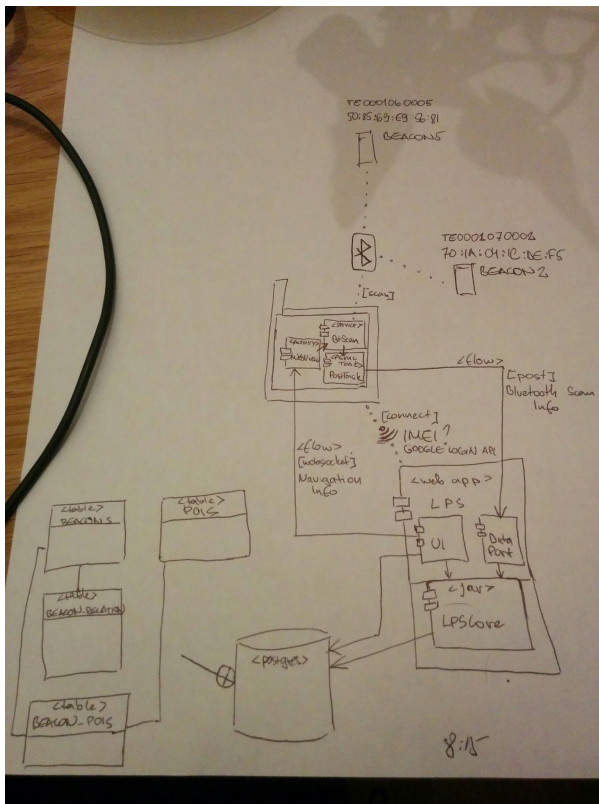 TE0001060005
BEACON5
TE0001070002
BEACON2
[scan]
<service>
BtScan
<activity>
WebView
PostTask
<flow>
[post]
Bluetooth Scan
Info
[connect]
IMEI?
GOOGLE LOGIN API
<flow>
[websocket]
Navigation
Info
<web app>
LPS
UI
Data
Port
<jar>
LPSCore
<table>
BEACONS
<table>
POIS
<table>
BEACON_RELATION
<postgres>
<table>
BEACON_POIS
8:15